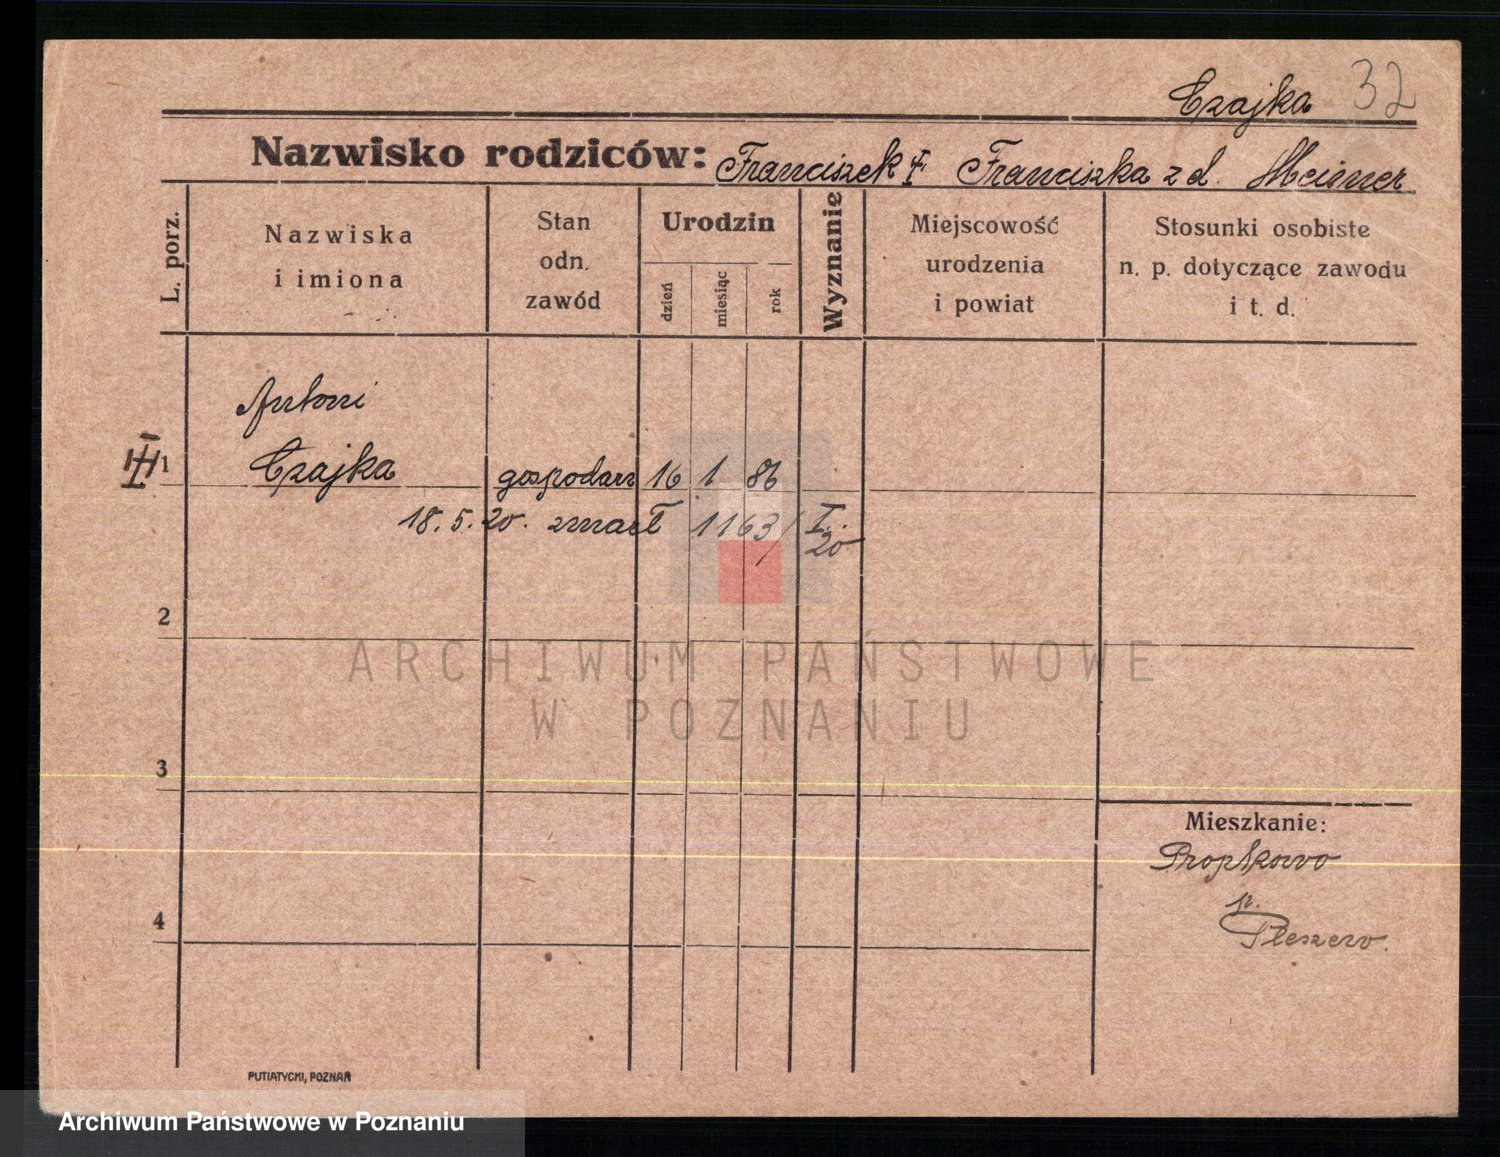 Czajka 32
Nazwisko rodziców: Franciszek Franciszka z d. Meisner
L. porz.
Nazwiska
i imiona
Stan
odn.
zawód
Urodzin
dzień
miesiąc
rok
Wyznanie
Miejscowość
urodzenia
i powiat
Stosunki osobiste
n. p. dotyczące zawodu
i t. d.
Antoni
1 Czajka gospodarz 16 1 86
18.5.20. zmarł 1163/I.20
2
ARCHIWUM PAŃSTWOWE
W POZNANIU
3
Mieszkanie:
4
p.
Pleszew.
PUTIATYCKI, POZNAŃ
Archiwum Państwowe w Poznaniu